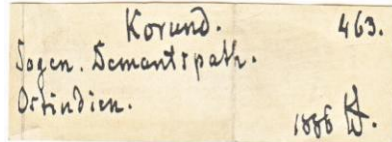 Korund. 463.
Sogen. Demantspath.
Ostindien.
1886